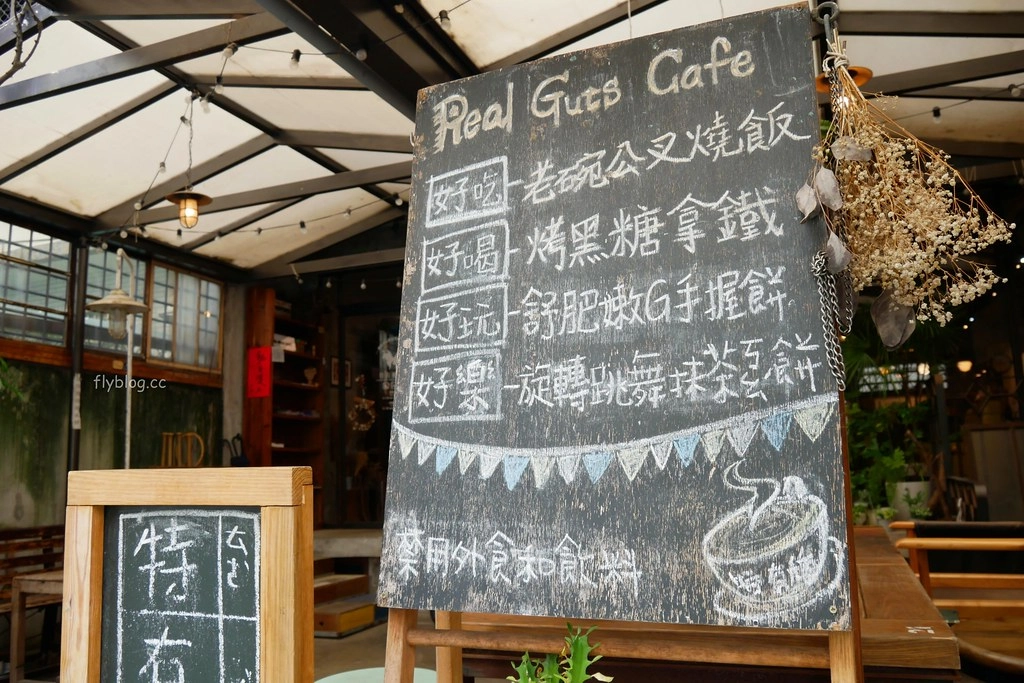 Real Guts Cafe
好吃-老碗公叉燒飯
好喝-烤黑糖拿鐵
好玩-舒肥嫩G手握餅
好樂-旋轉跳舞抹茶雲餅
禁用外食和飲料
flyblog.cc
特有